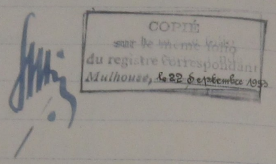 COPIÉ
sur le même folio
du registre Correspondant
Mulhouse, le 22 Septembre